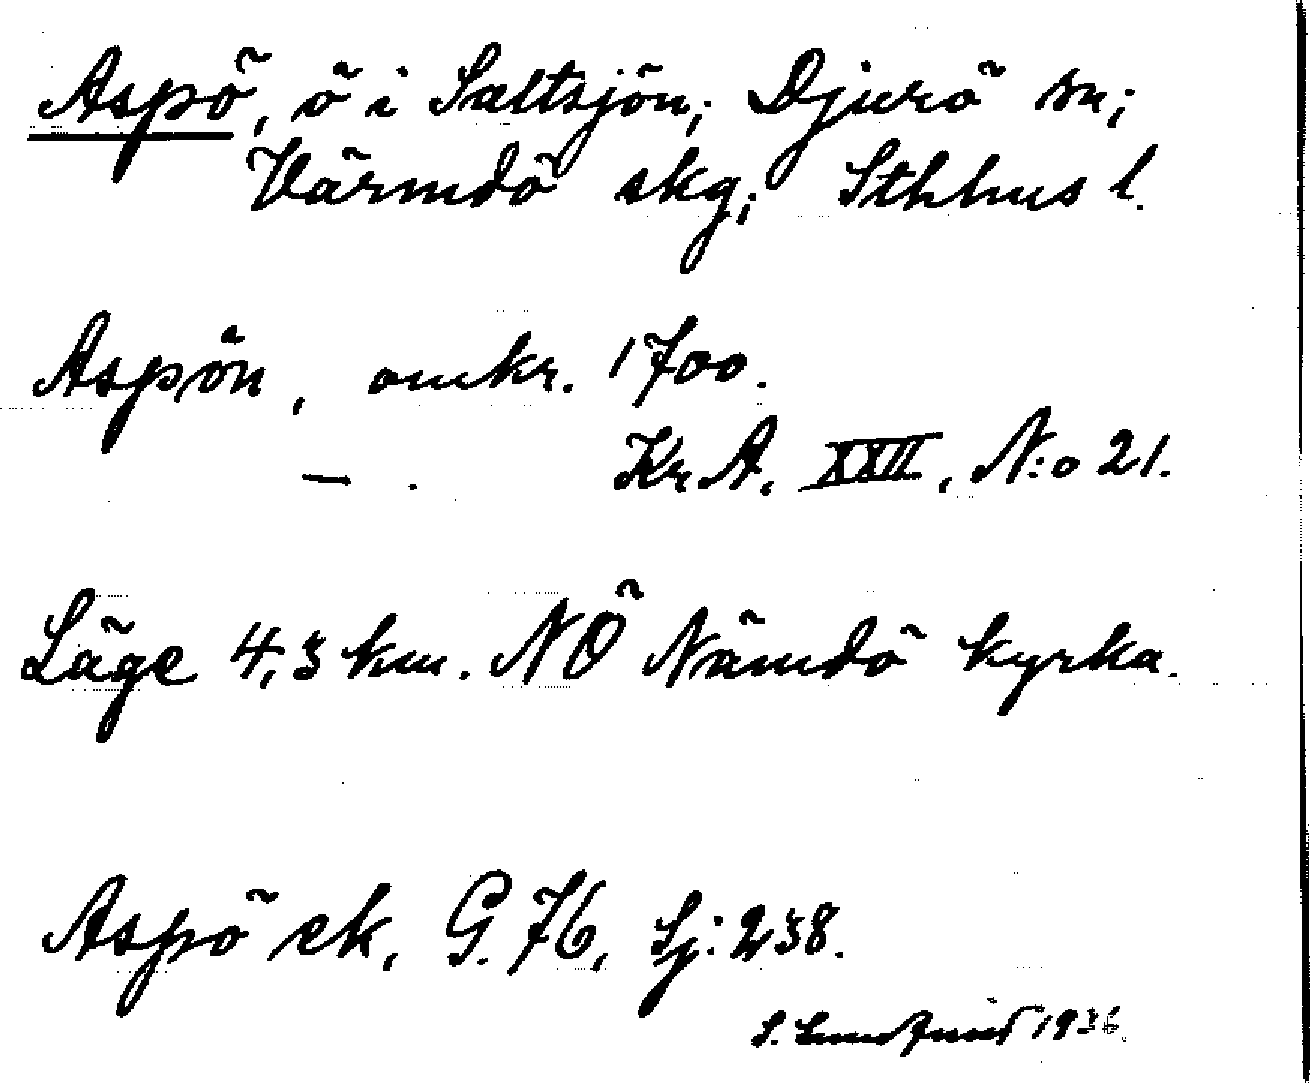 Aspö, ö i Saltsjön; Djurö sn;
Värmdö skg; Sthlms l.
Aspön, omkr. 1700.
— . Kr. A. XXII, N:o 21.
Läge 4,3 km. NÖ Nämdö kyrka.
Aspö ek, G. 76, Sj: 238.
S. 1936.